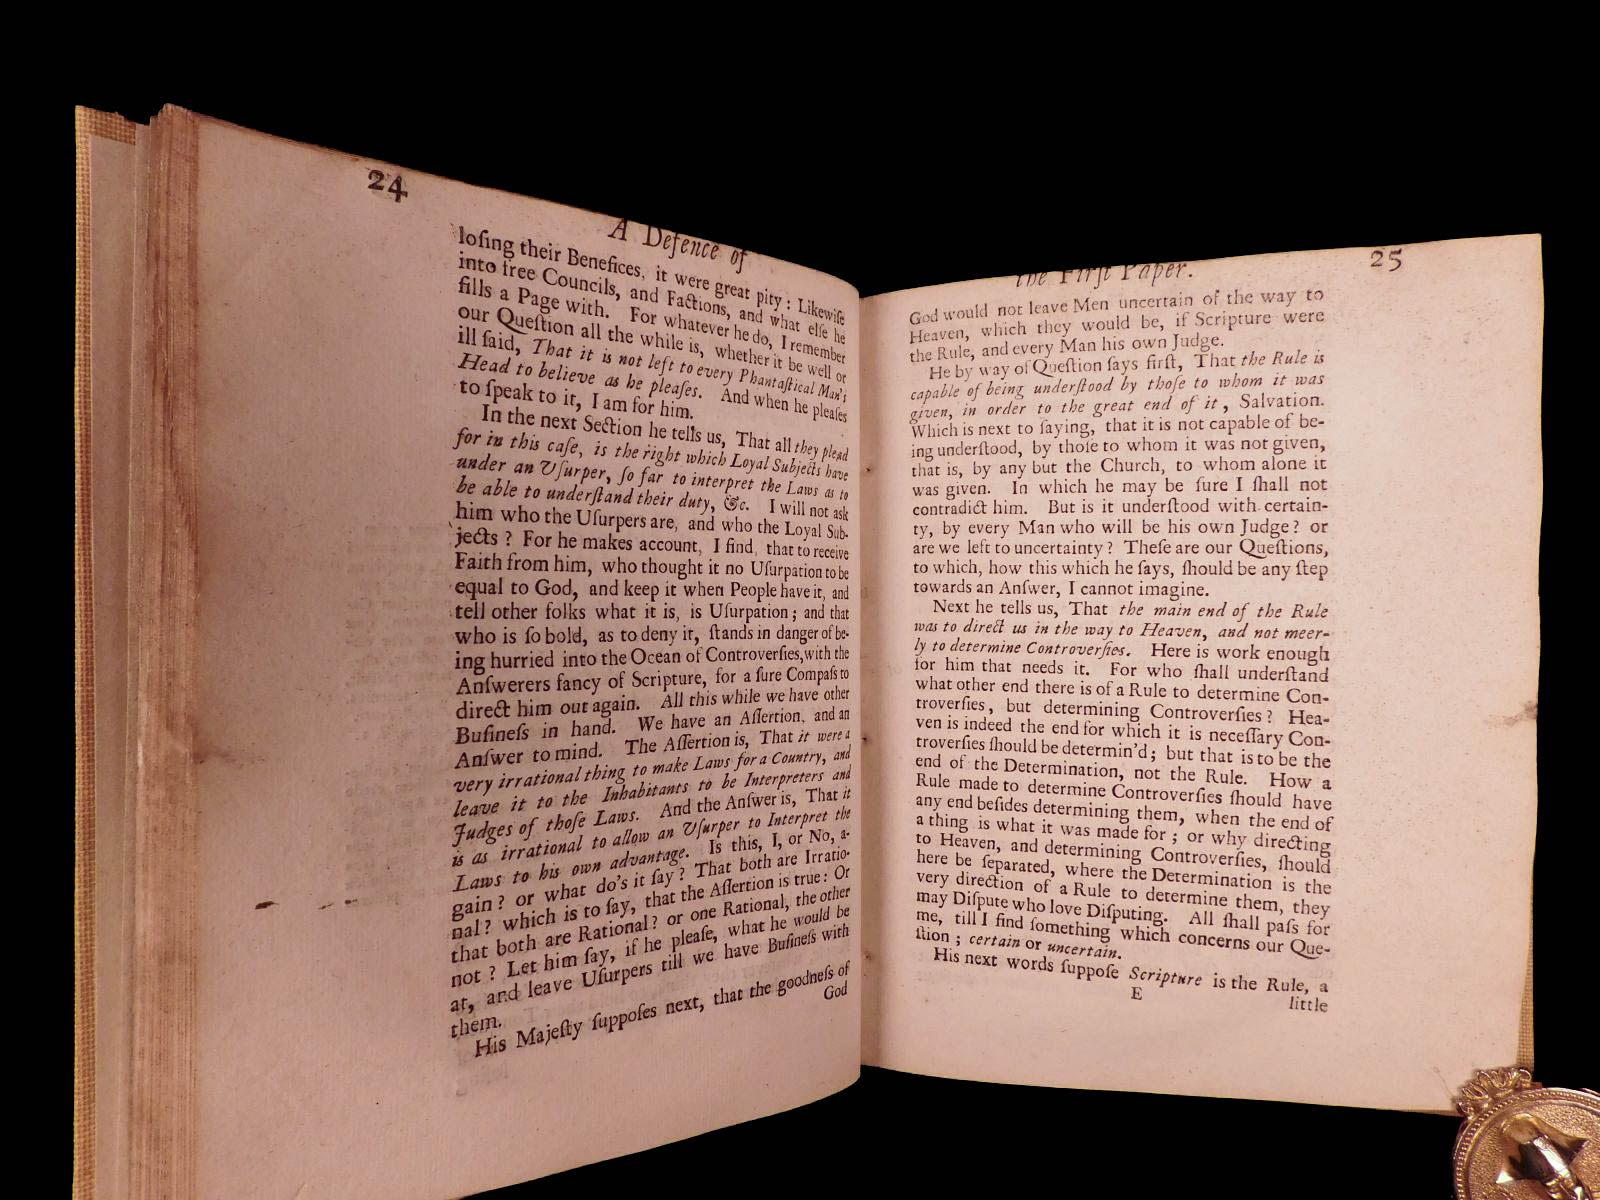 24
A Defence of
loſing their Benefices, it were great pity: Likewiſe
into free Councils, and Factions, and what elſe he
fills a Page with. For whatever he do, I remember
our Queſtion all the while is, whether it be well or
ill ſaid, That it is not left to every Phantaſtical Man's
Head to believe as he pleaſes. And when he pleaſes
to ſpeak to it, I am for him.
In the next Section he tells us, That all they plead
for in this caſe, is the right which Loyal Subjects have
under an Uſurper, ſo far to interpret the Laws as to
be able to underſtand their duty, &c. I will not ask
him who the Uſurpers are, and who the Loyal Sub-
jects? For he makes account, I find, that to receive
Faith from him, who thought it no Uſurpation to be
equal to God, and keep it when People have it, and
tell other folks what it is, is Uſurpation; and that
who is ſo bold, as to deny it, ſtands in danger of be-
ing hurried into the Ocean of Controverſies, with the
Anſwerers fancy of Scripture, for a ſure Compaſs to
direct him out again. All this while we have other
Buſineſs in hand. We have an Aſſertion, and an
Anſwer to mind. The Aſſertion is, That it were a
very irrational thing to make Laws for a Country, and
leave it to the Inhabitants to be Interpreters and
Judges of thoſe Laws. And the Anſwer is, That it
is as irrational to allow an Uſurper to Interpret the
Laws to his own advantage. Is this, I, or No, a-
gain? or what do's it ſay? That both are Irratio-
nal? which is to ſay, that the Aſſertion is true: Or
that both are Rational? or one Rational, the other
not? Let him ſay, if he pleaſe, what he would be
at, and leave Uſurpers till we have Buſineſs with
them.
His Majeſty ſuppoſes next, that the goodneſs of
God
25
the Firſt Paper.
God would not leave Men uncertain of the way to
Heaven, which they would be, if Scripture were
the Rule, and every Man his own Judge.
He by way of Queſtion ſays firſt, That the Rule is
capable of being underſtood by thoſe to whom it was
given, in order to the great end of it, Salvation.
Which is next to ſaying, that it is not capable of be-
ing underſtood, by thoſe to whom it was not given,
that is, by any but the Church, to whom alone it
was given. In which he may be ſure I ſhall not
contradict him. But is it underſtood with certain-
ty, by every Man who will be his own Judge? or
are we left to uncertainty? Theſe are our Queſtions,
to which, how this which he ſays, ſhould be any ſtep
towards an Anſwer, I cannot imagine.
Next he tells us, That the main end of the Rule
was to direct us in the way to Heaven, and not meer-
ly to determine Controverſies. Here is work enough
for him that needs it. For who ſhall underſtand
what other end there is of a Rule to determine Con-
troverſies, but determining Controverſies? Hea-
ven is indeed the end for which it is neceſſary Con-
troverſies ſhould be determin'd; but that is to be the
end of the Determination, not the Rule. How a
Rule made to determine Controverſies ſhould have
any end beſides determining them, when the end of
a thing is what it was made for; or why directing
to Heaven, and determining Controverſies, ſhould
here be ſeparated, where the Determination is the
very direction of a Rule to determine them, they
may Diſpute who love Diſputing. All ſhall paſs for
me, till I find ſomething which concerns our Que-
ſtion; certain or uncertain.
His next words ſuppoſe Scripture is the Rule, a
E
little